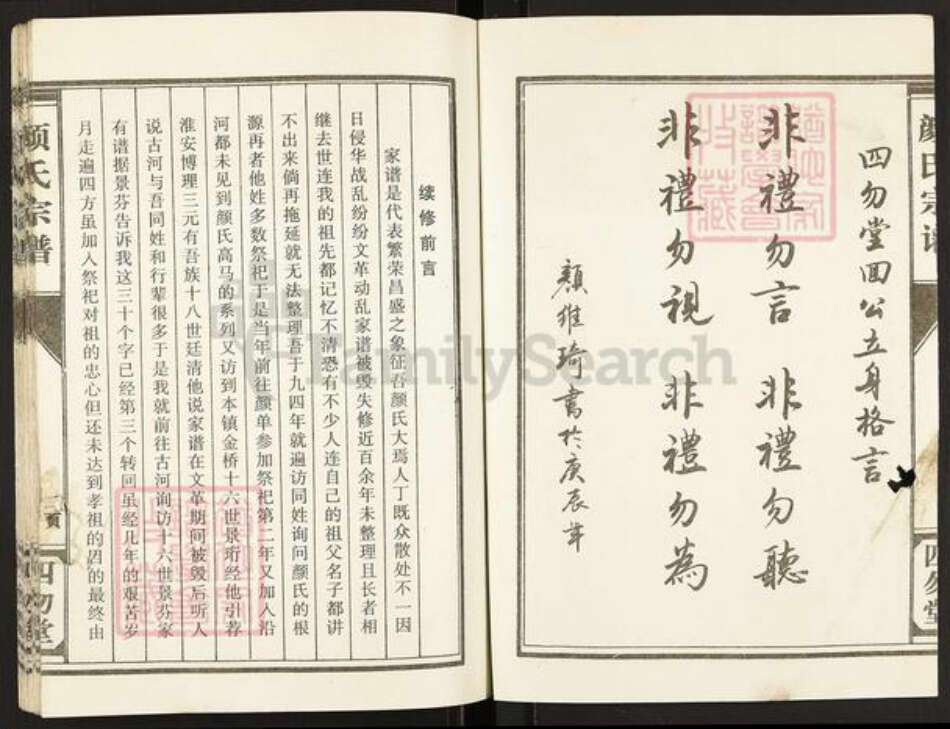 颜氏宗谱
四勿堂
四勿堂回公立身格言
非禮勿言 非禮勿聽
非禮勿視 非禮勿為
顏維琦書於庚辰年
续修前言
家谱是代表繁荣昌盛之象征吾颜氏大焉人丁既众散处不一因
日侵华战乱纷纷文革动乱家谱被毁失修近百余年未整理且长者相
继去世连我的祖先都记忆不清恐有不少人连自己的祖父名子都讲
不出来倘再拖延就无法整理吾于九四年就遍访同姓询问颜氏的根
源再者他姓多数祭祀于是当年前往颜单参加祭祀第二年又加入沿
河都未见到颜氏高马的系列又访到本镇金桥十六世景珩经他引荐
淮安博理三元有吾族十八世廷清他说家谱在文革期间被毁后听人
说古河与吾同姓和行辈很多于是我就前往古河询访十六世景芬家
有谱据景芬告诉我这三十个字已经第三个转回虽经几年的艰苦岁
月走遍四方虽加入祭祀对祖的忠心但还未达到孝祖的目的最终由
颜氏宗谱
二页
四勿堂
FamilySearch